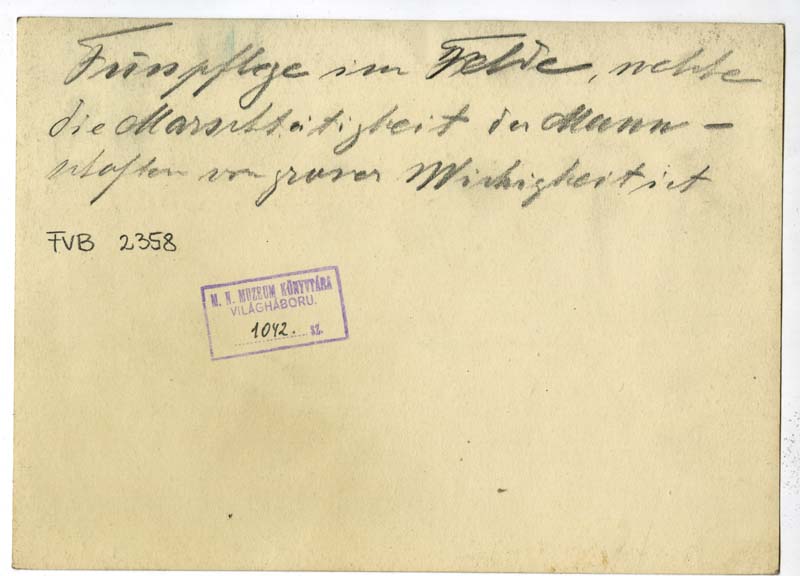 Fusspflege im Felde, welche
die Marschtätigkeit der Mann-
schaften von grosser Wichigkeit ist
FVB 2358
M. N. MUZEUM KÖNYVTÁRA
VILÁGHÁBORU.
1042. SZ.